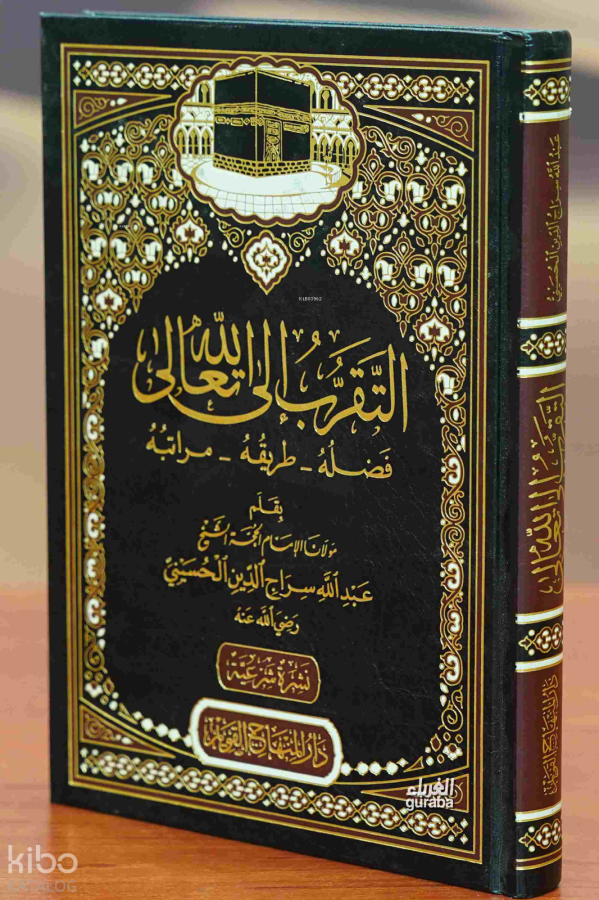 التَّقَرُّبُ إِلَى اللهِ تَعَالَى
فَضْلُهُ - طَرِيقُهُ - مَرَاتِبُهُ
بِقَلَمِ
مَوْلَانَا الإِمَامِ الْحُجَّةِ الشَّيْخِ
عَبْدِ اللهِ سِرَاجِ الدِّينِ الْحُسَيْنِيِّ
رَضِيَ اللهُ عَنْهُ
نَشْرَةٌ شَرْعِيَّة
دَارُ الْمِنْهَاجِ الْقَوِيمِ
عَبْدُ اللهِ سِرَاجُ الدِّينِ الْحُسَيْنِيُّ
التَّقَرُّبُ إِلَى اللهِ تَعَالَى
دَارُ الْمِنْهَاجِ الْقَوِيمِ
الغرباء
guraba
kibo
KATALOG